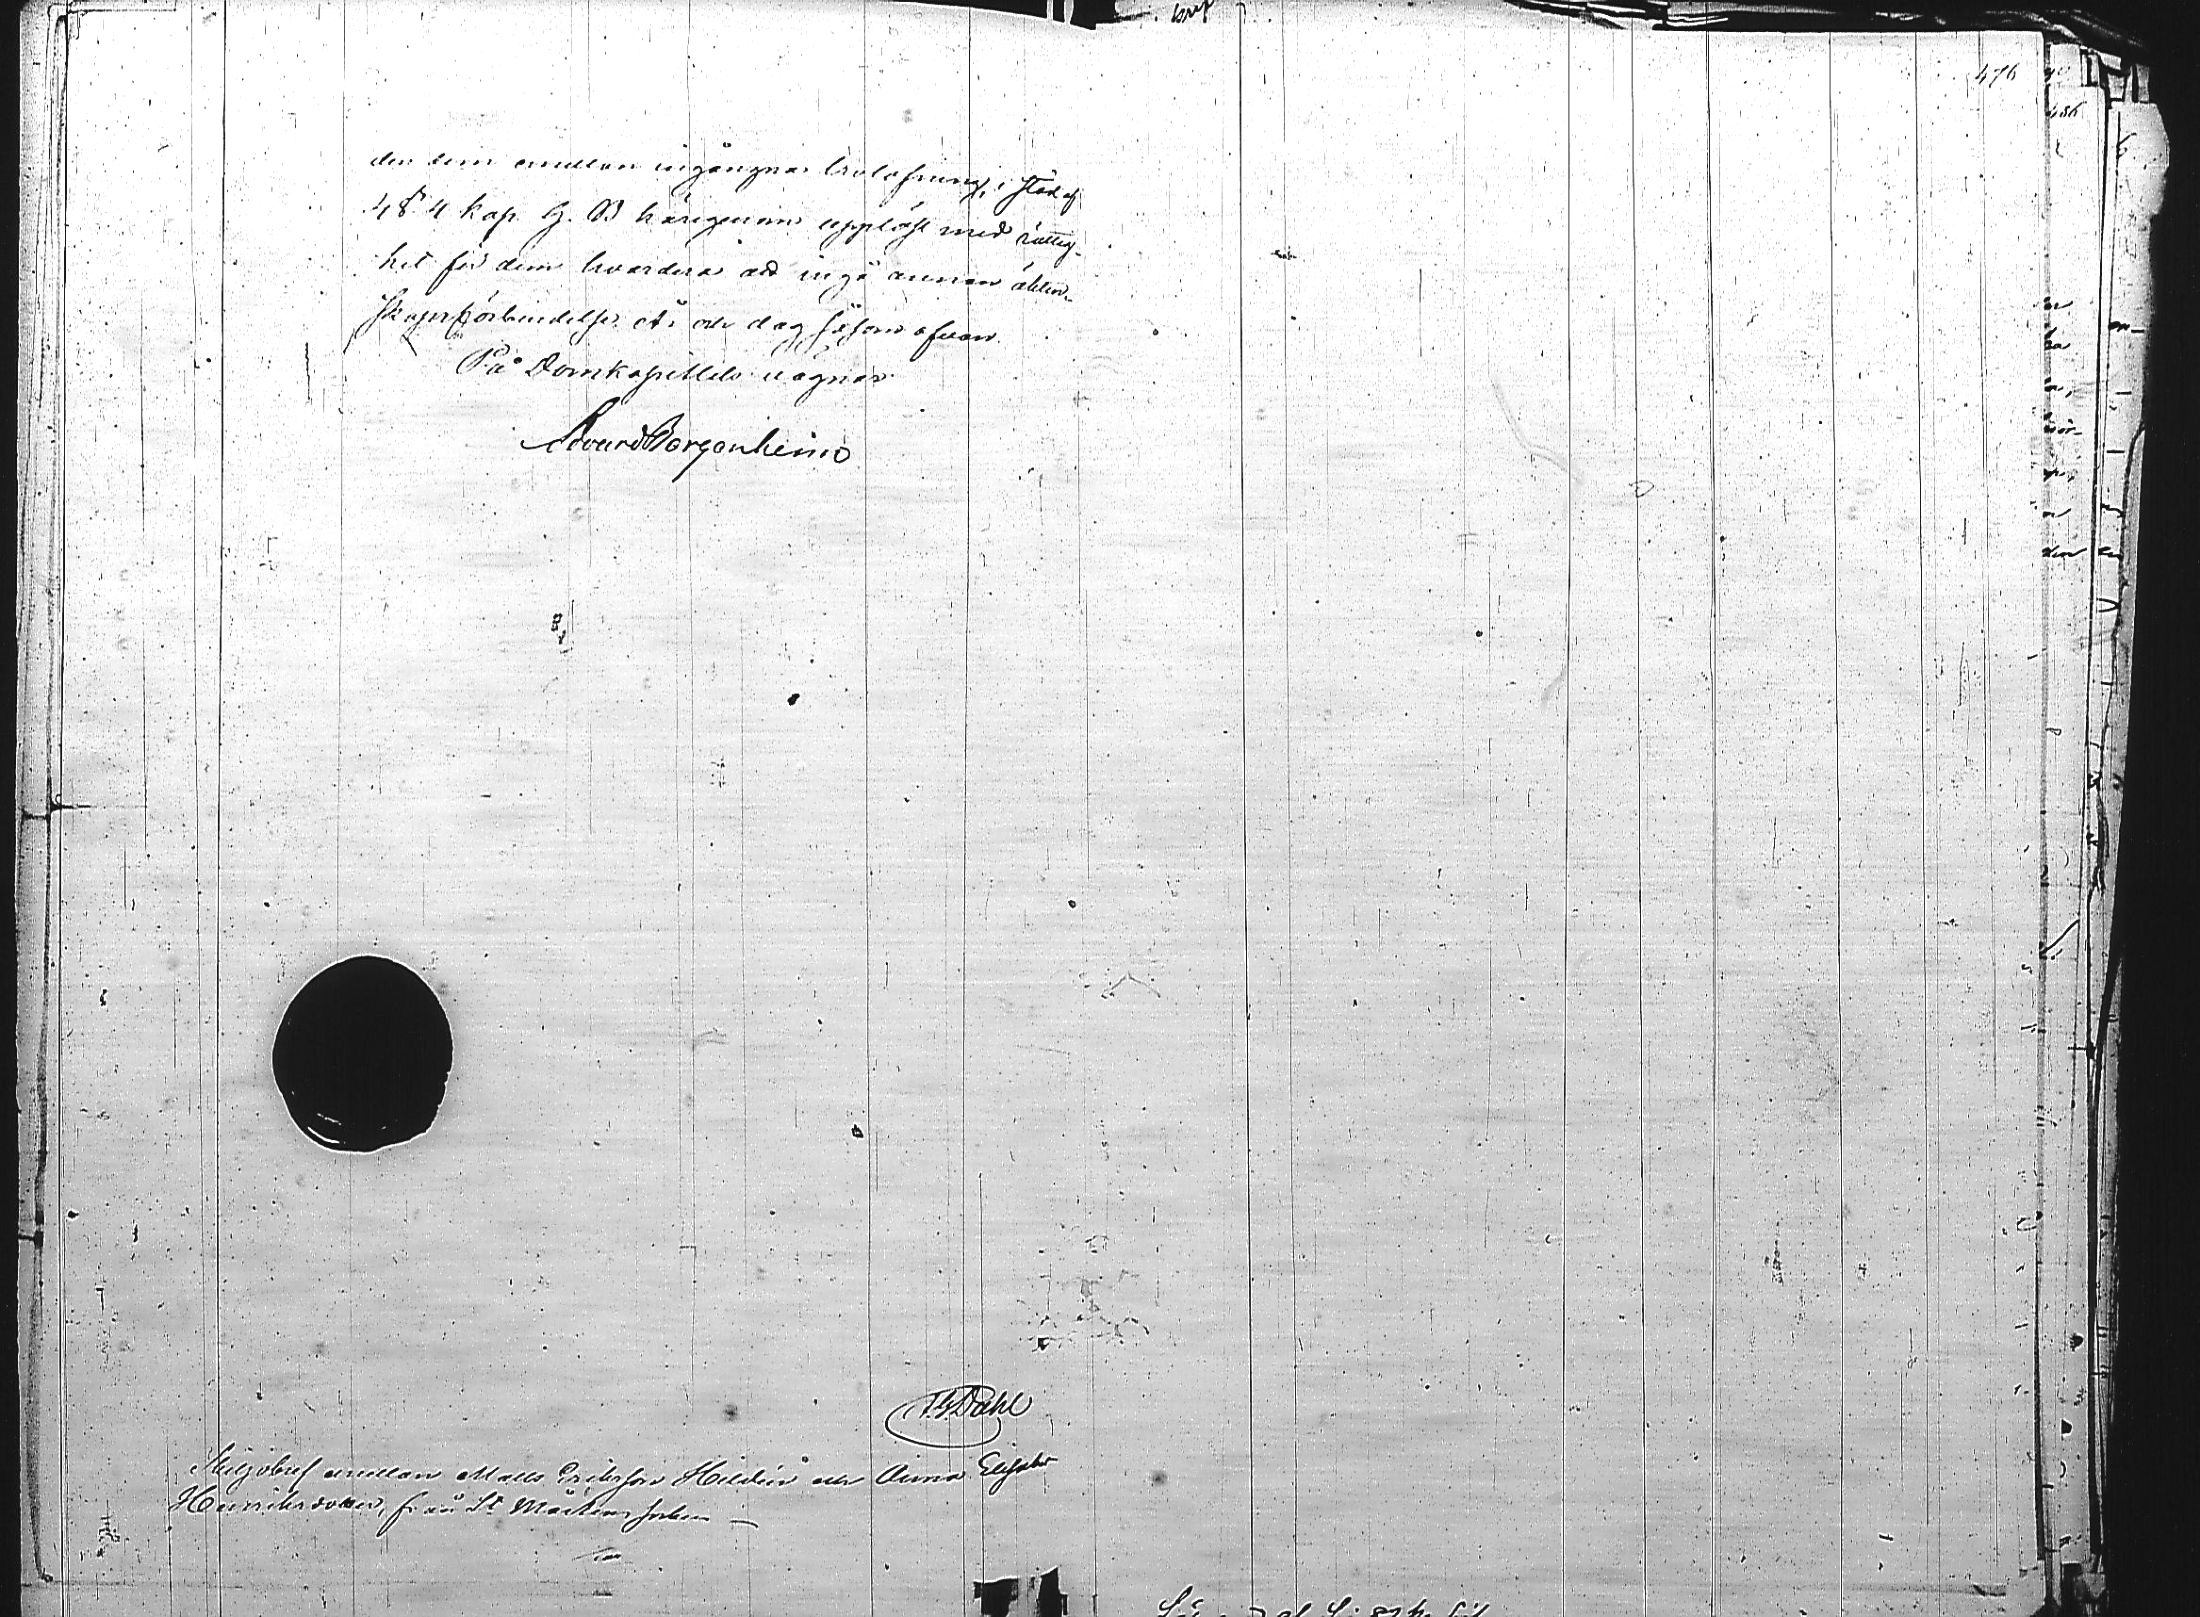 476
den dem emellan ingångna trolofning, i stöd af
4 §. 4 kap. G. B härigenom upplöst med rättig-
het för dem hvardera att ingå annan äkten-
skapsförbindelse. År och dag såsom ofvan.
På Domkapitlets vägnar:
Edvard Bergenheim
Dahl
Skiljobref emellan Matts Eriksson Heldén och Anna Elisabet
Henriksdotter, från St Mårtens socken —